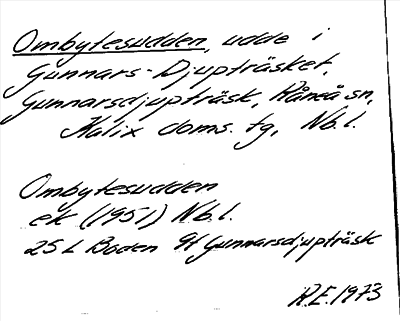 Ombytesudden, udde i
Gunnars-Djupträsket,
Gunnarsdjupträsk, Råneå sn,
Kalix doms. tg, Nb.l.
Ombytesudden
ek (1951) Nb.l.
25 L Boden 9f Gunnarsdjupträsk
R.E. 1973